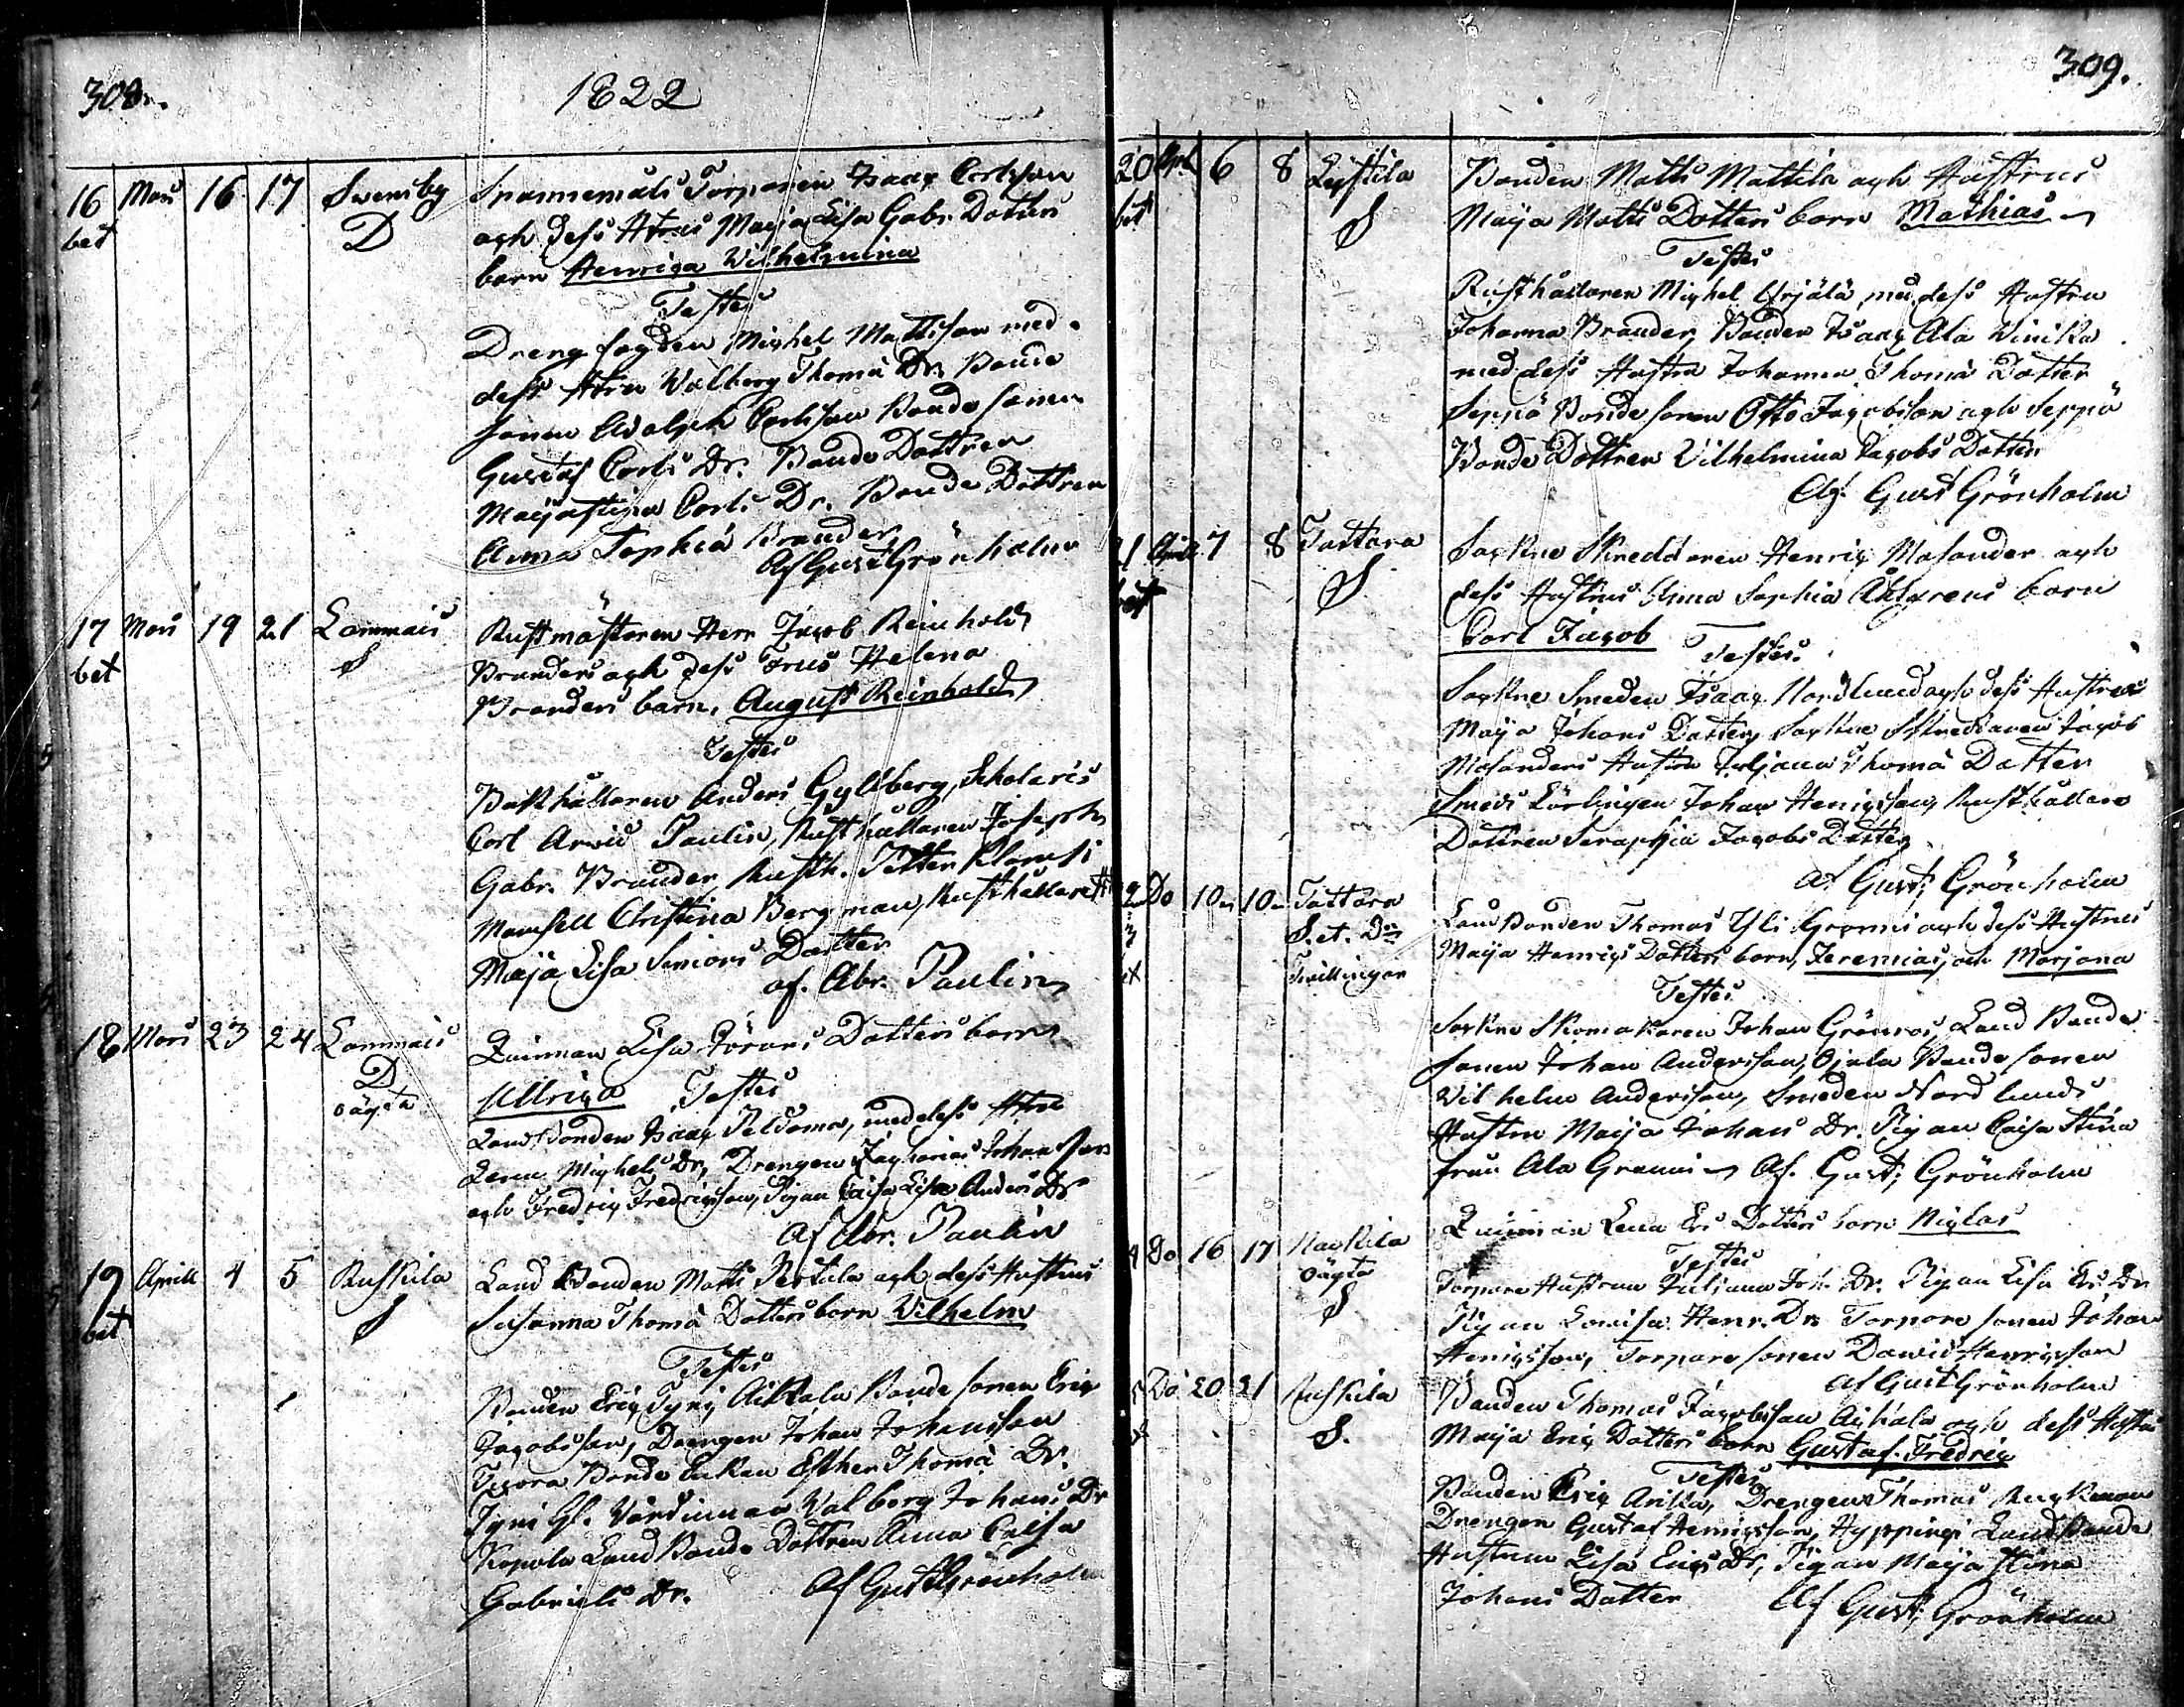 308.
1822
16 Mars 16 17 Swensby Spannemåls Torparen Isaac Carlsson
bet D och dess Hstrus Maija Lisa Gabr. Dotters
barn Henrica Wilhelmina
Testes
Dreng fogden Michel Mattsson med
dess Hstru Walborg Thomæ Dr. Bonde
sonen Adolph Carlsson Bonde sonen
Gustaf Carls Dr. Bonde Dottren
Maija Stina Carls Dr. Bonde Dottren
Anna Sophia Brander
Af Gust Grönholm
17 Mars 19 21 Lammais Rustmästaren Herr Jacob Reinhold
bet S Branders och dess Frus Helena
Branders barn, August Reinhold
Testes
Anders Gyllberg, Scholaris
Carl Arvid Paulin, Rusthållaren Joseph
Gabr. Brander, Rusth. Petter
Mamsell Christina Bergman, Rusthållare
Maja Lisa Seniors Dotter
af. Abr. Paulin
18 Mars 23 24 Lammais Quinnan Lisa Görans Dotters barn
D Ulrica Testes
oägta
Landbonden Isaac Peldoma, med dess Hstru
Lena Michels Dr, Drengen Zacharias Johansson
och Fredric Fredricsson, Pigan Caisa Lisa Anders Dr
Af Abr. Paulin
19 Aprill 4 5 Ruskila Landbonden Matts Pertula och dess Hustrus
bet S Susanna Thomæ Dotters barn Wilhelm
Testes
Bonden Eric Tyni, Aikkala Bonde sonen Eric
Jacobsson, Drengen Johan Johansson
Bonde Enkan Esther Thomæ Dr.
Tyni Gl. Värdinnan Walborg Johans Dr
Kopola Land Bonde Dottren Anna Caisa
Gabriels Dr. Af Gust Grönholm
309.
20 Apl 6 8 Lepistila Bonden Matts Mattila och Hustrus
bet S Maija Matts Dotters barn Mathias
Testes
Rusthållaren Michel Yrjälä med dess Hustru
Johanna Brander, Bonden Isaac Ala Winika
med dess Hustru Johanna Thomæ Dotter
Seppä Bonde sonen Otto Jacobsson och Seppä
Bonde Dottren Wilhelmina Jacobs Dotter
Af. Gust Grönholm
21 Aprill 7 8 Tattara Sockne Skreddaren Henric Masander och
bet S dess Hustrus Anna Sophia barn
Carl Jacob Testes.
Sockne Smeden Isaac Nordlund och dess Hustru
Maija Johans Dotter, Sockne Skreddaren Jacob
Masanders Hustru Juljana Thomæ Dotter
Smeds Lärlingen Johan Henricsson, Rusthållare
Dottren Seraphia Jacobs Dotter
Af Gust; Grönholm
Do 10 10 Tattara Landbonden Thomas Yli Grommi och dess Hustrus
S. et. D. Maija Henrics Dotters barn, Jeremias, och Marjana
Tvillingar
Testes
Sockne Skomakaren Johan Grönros, Land Bonde
sonen Johan Andersson, Ojala Bonde sonen
Wilhelm Andersson, Smeden Nordlunds
Hustru Maija Johans Dr. Pigan Caisa Stina
från Ala Grommi Af. Gust; Grönholm
Do 16 17 Naskila Quinnan Lena Ers Dotters barn Niclas
oägta Testes
S Torpare Hustrun Juliana Joh. Dr. Pigan Lisa Ers Dr
Pigan Lovisa Henr. Dr Torpare sonen Johan
Henricsson, Torpare sonen David Henricsson
Af Gust Grönholm
Do 20 21 Ruskila Bonden Thomas Jacobsson Aikala och dess Hustrus
S. Maija Erics Dotters barn Gustaf Fredric
Testes
Bonden Eric Arikka, Drengen Thomas
Drengen Gustaf Henricsson, Hyppingi Landbonde
Hustrun Lisa Erics Dr, Pigan Maija Stina
Johans Dotter Af Gust; Grönholm